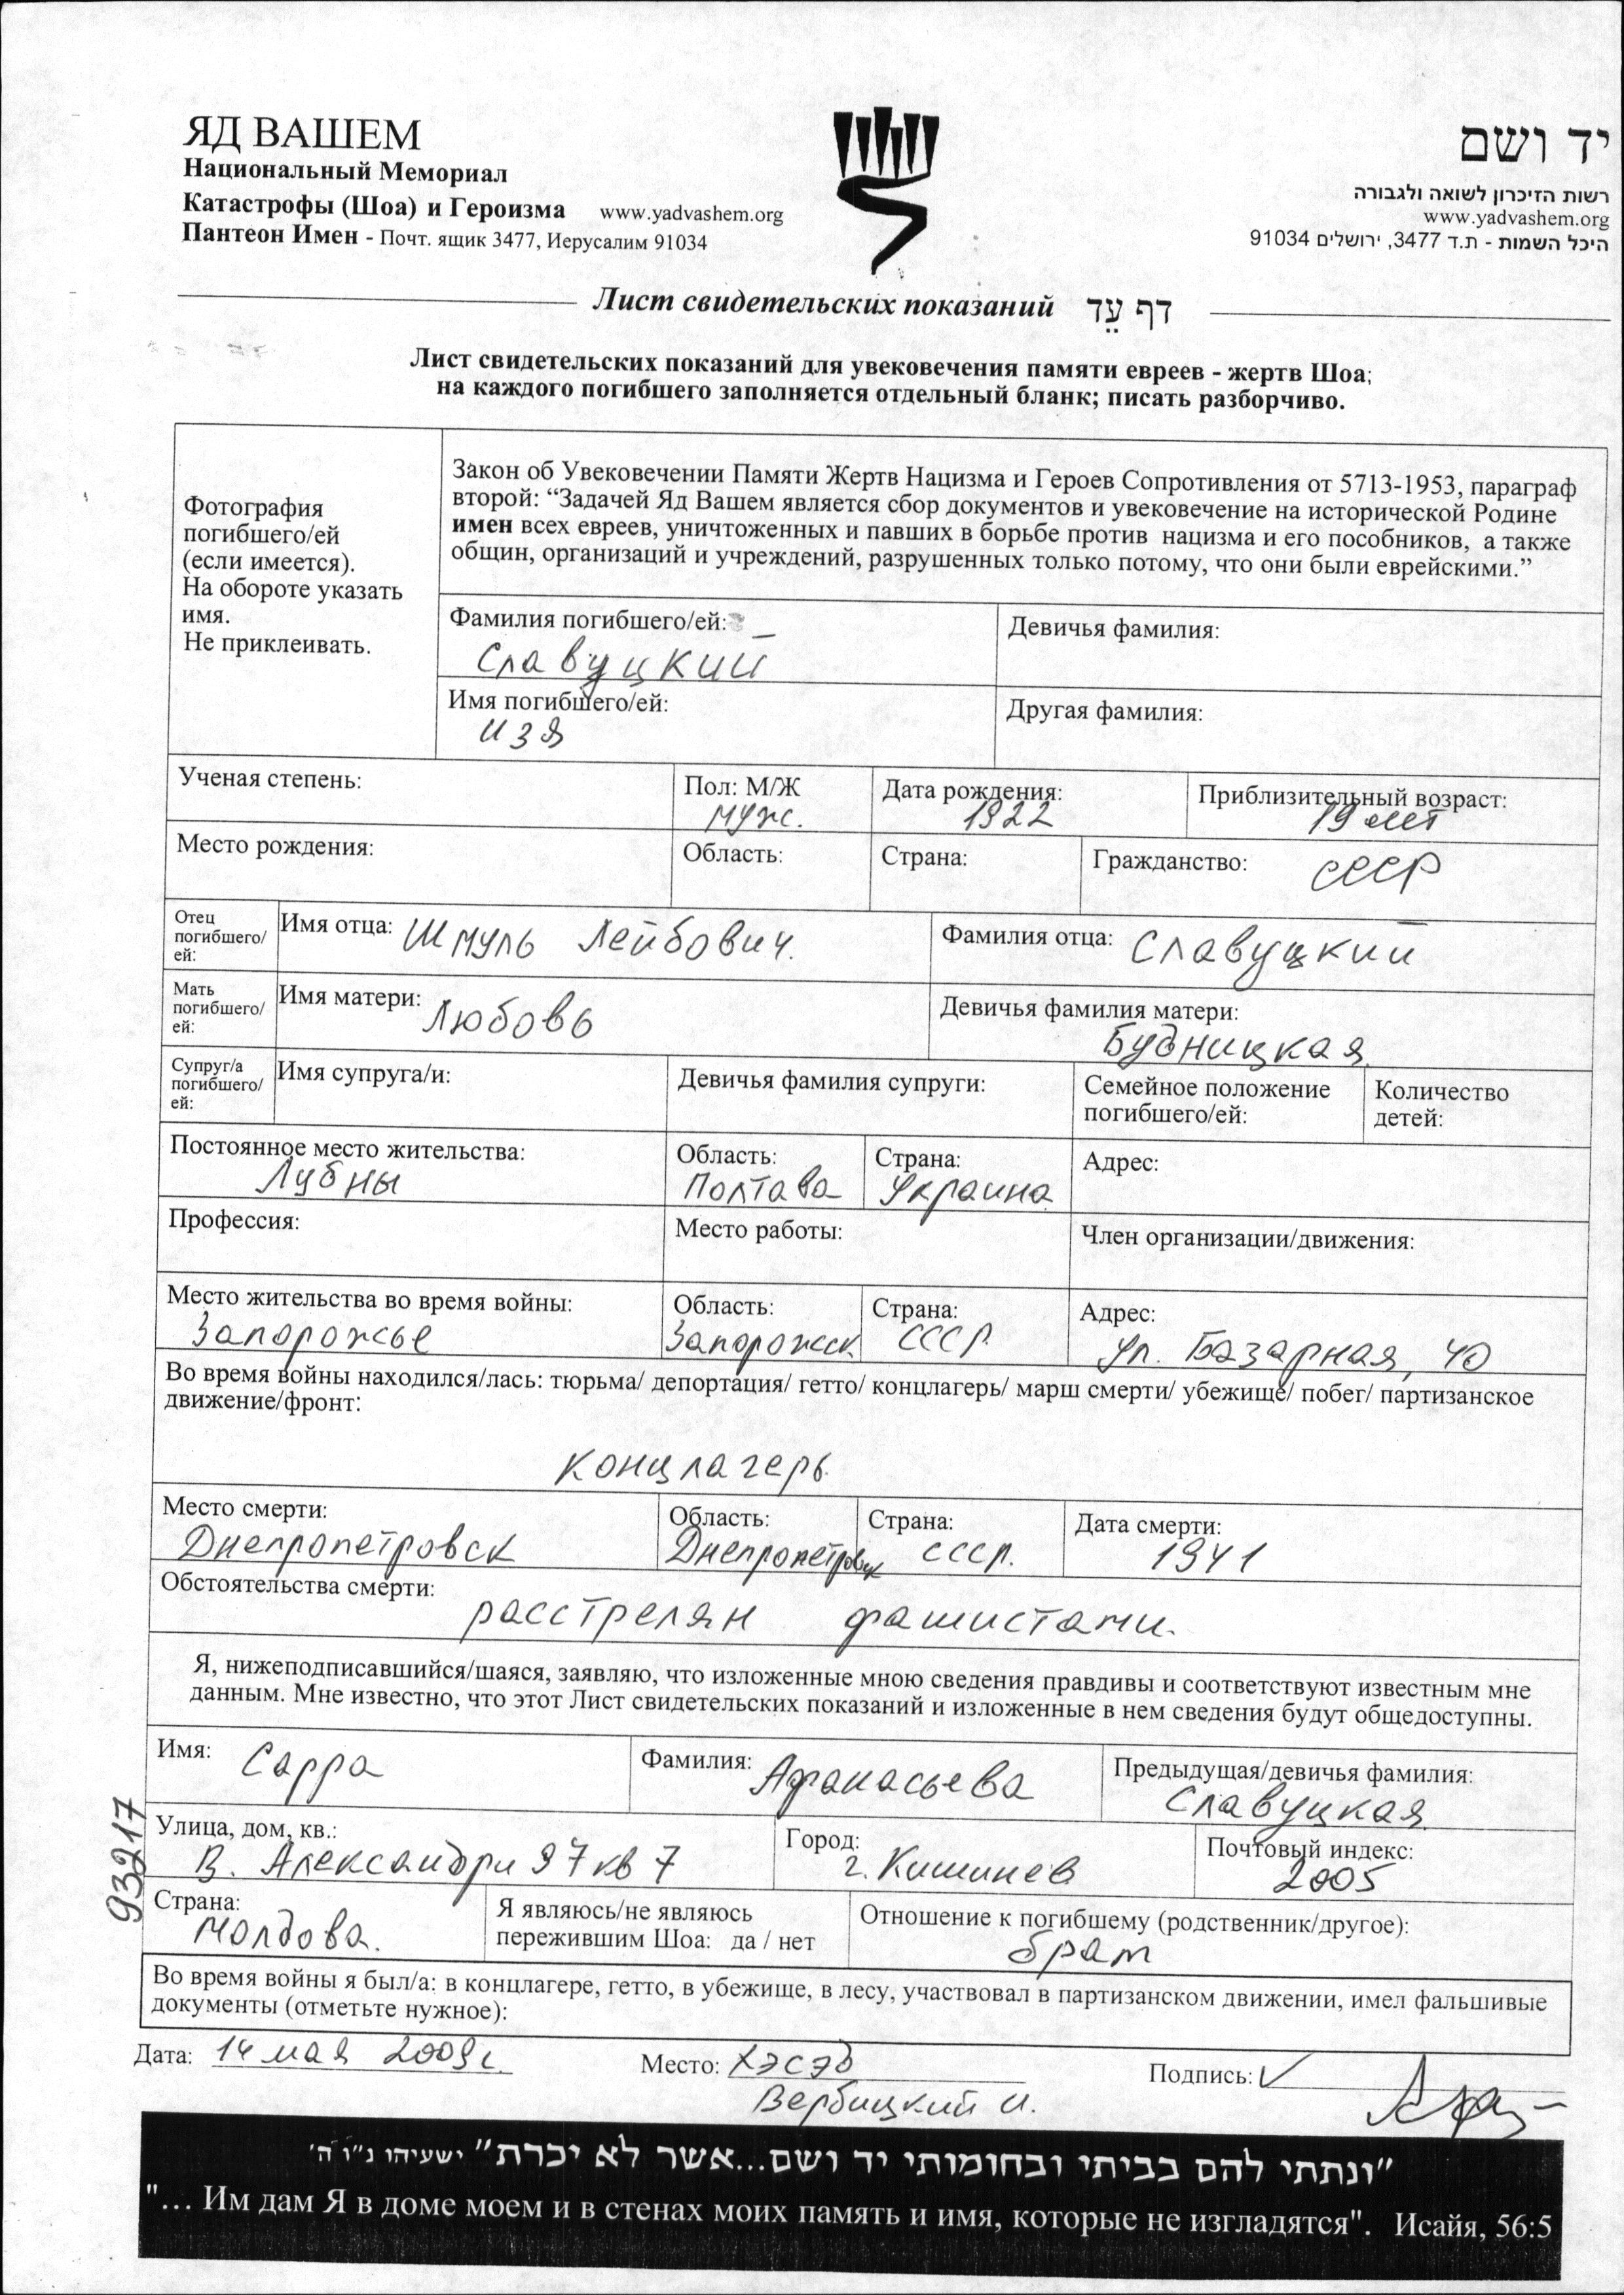 ЯД ВАШЕМ
Национальный Мемориал
Катастрофы (Шоа) и Героизма www.yadvashem.org
Пантеон Имен - Почт. ящик 3477, Иерусалим 91034
יד ושם
רשות הזיכרון לשואה ולגבורה
www.yadvashem.org
היכל השמות - ת.ד 3477, ירושלים 91034
Лист свидетельских показаний דף עֵד
Лист свидетельских показаний для увековечения памяти евреев - жертв Шоа;
на каждого погибшего заполняется отдельный бланк; писать разборчиво.
Фотография
погибшего/ей
(если имеется).
На обороте указать
имя.
Не приклеивать.
Закон об Увековечении Памяти Жертв Нацизма и Героев Сопротивления от 5713-1953, параграф
второй: “Задачей Яд Вашем является сбор документов и увековечение на исторической Родине
имен всех евреев, уничтоженных и павших в борьбе против нацизма и его пособников, а также
общин, организаций и учреждений, разрушенных только потому, что они были еврейскими.”
Фамилия погибшего/ей:
Славуцкий
Девичья фамилия:
Имя погибшего/ей:
Изя
Другая фамилия:
Ученая степень:
Пол: М/Ж
муж.
Дата рождения:
1922
Приблизительный возраст:
19 лет
Место рождения:
Область:
Страна:
Гражданство: СССР
Отец
погибшего/
ей:
Имя отца: Шмуль Лейбович.
Фамилия отца: Славуцкий
Мать
погибшего/
ей:
Имя матери: Любовь
Девичья фамилия матери:
Будницкая.
Супруг/а
погибшего/
ей:
Имя супруга/и:
Девичья фамилия супруги:
Семейное положение
погибшего/ей:
Количество
детей:
Постоянное место жительства:
Лубны
Область:
Полтава
Страна:
Украина
Адрес:
Профессия:
Место работы:
Член организации/движения:
Место жительства во время войны:
Запорожье
Область:
Запорожск.
Страна:
СССР.
Адрес:
ул. Базарная, 40
Во время войны находился/лась: тюрьма/ депортация/ гетто/ концлагерь/ марш смерти/ убежище/ побег/ партизанское
движение/фронт:
концлагерь
Место смерти:
Днепропетровск
Область:
Днепропетровск
Страна:
СССР.
Дата смерти:
1941
Обстоятельства смерти:
расстрелян фашистами.
Я, нижеподписавшийся/шаяся, заявляю, что изложенные мною сведения правдивы и соответствуют известным мне
данным. Мне известно, что этот Лист свидетельских показаний и изложенные в нем сведения будут общедоступны.
Имя: Сарра
Фамилия: Афанасьева
Предыдущая/девичья фамилия:
Славуцкая
Улица, дом, кв.:
В. Александри 97 кв 7
Город:
г. Кишинев
Почтовый индекс:
2005
93217
Страна:
Молдова.
Я являюсь/не являюсь
пережившим Шоа: да / нет
Отношение к погибшему (родственник/другое):
брат
Во время войны я был/а: в концлагере, гетто, в убежище, в лесу, участвовал в партизанском движении, имел фальшивые
документы (отметьте нужное):
Дата: 14 мая 2009 г.
Место: Хэсэд
Вербицкий И.
Подпись:
״ונתתי להם בביתי ובחומותי יד ושם...אשר לא יכרת״ ישעיהו נ״ו ה׳
"... Им дам Я в доме моем и в стенах моих память и имя, которые не изгладятся". Исайя, 56:5